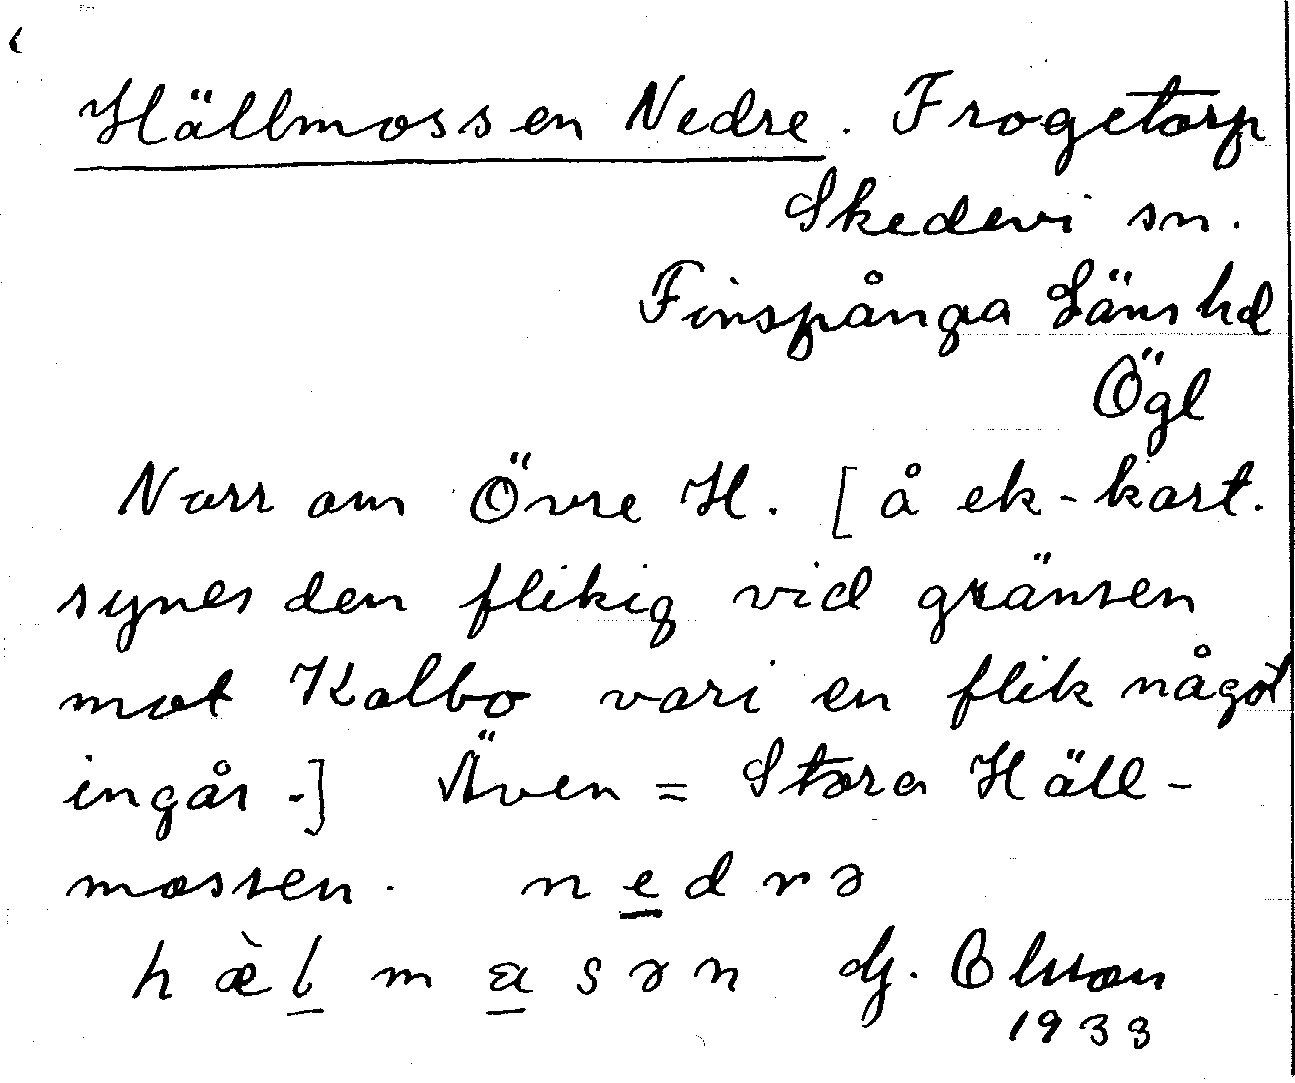 Hällmossen Nedre. Frogetorp
Skedevi sn.
Finspånga Länshd
Ögl
Norr om Övre H. [å ek-kart.
synes den flikig vid gränsen
mot Kalbo vari en flik något
ingår.] Även = Stora Häll-
mossen. nedrə
hæ̀lmasən dj. Olsson
1933